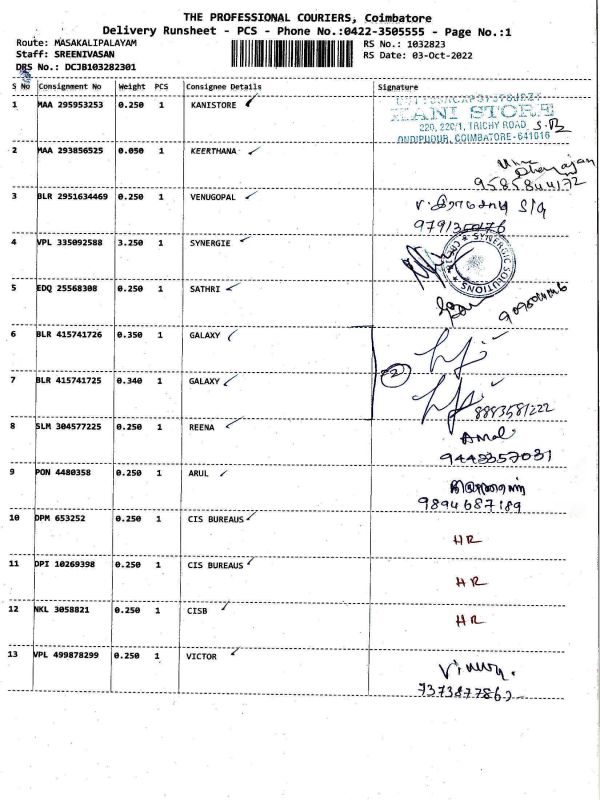 THE PROFESSIONAL COURIERS, Coimbatore
Delivery Runsheet - PCS - Phone No.:0422-3505555 - Page No.:1
Route: MASAKALIPALAYAM RS No.: 1032823
Staff: SREENIVASAN RS Date: 03-Oct-2022
DRS No.: DCJB103282301
S No Consignment No Weight PCS Consignee Details Signature
1 MAA 295953253 0.250 1 KANISTORE
MANI STORE
220, 220/1, TRICHY ROAD
ONDIPUDUR, COIMBATORE-641016
2 MAA 293856525 0.050 1 KEERTHANA
9585844172
3 BLR 2951634469 0.250 1 VENUGOPAL
4 VPL 335092588 3.250 1 SYNERGIE
SYNERGIC SOLUTIONS
5 EDQ 25568308 0.250 1 SATHRI
6 BLR 415741726 0.350 1 GALAXY
2
7 BLR 415741725 0.340 1 GALAXY
8883581222
8 SLM 304577225 0.250 1 REENA
Amal
9443357031
9 PON 4480358 0.250 1 ARUL
9894687189
10 DPM 653252 0.250 1 CIS BUREAUS
HR
11 DPI 10269398 0.250 1 CIS BUREAUS
HR
12 NKL 3058821 0.250 1 CISB
HR
13 VPL 499878299 0.250 1 VICTOR
7373877862